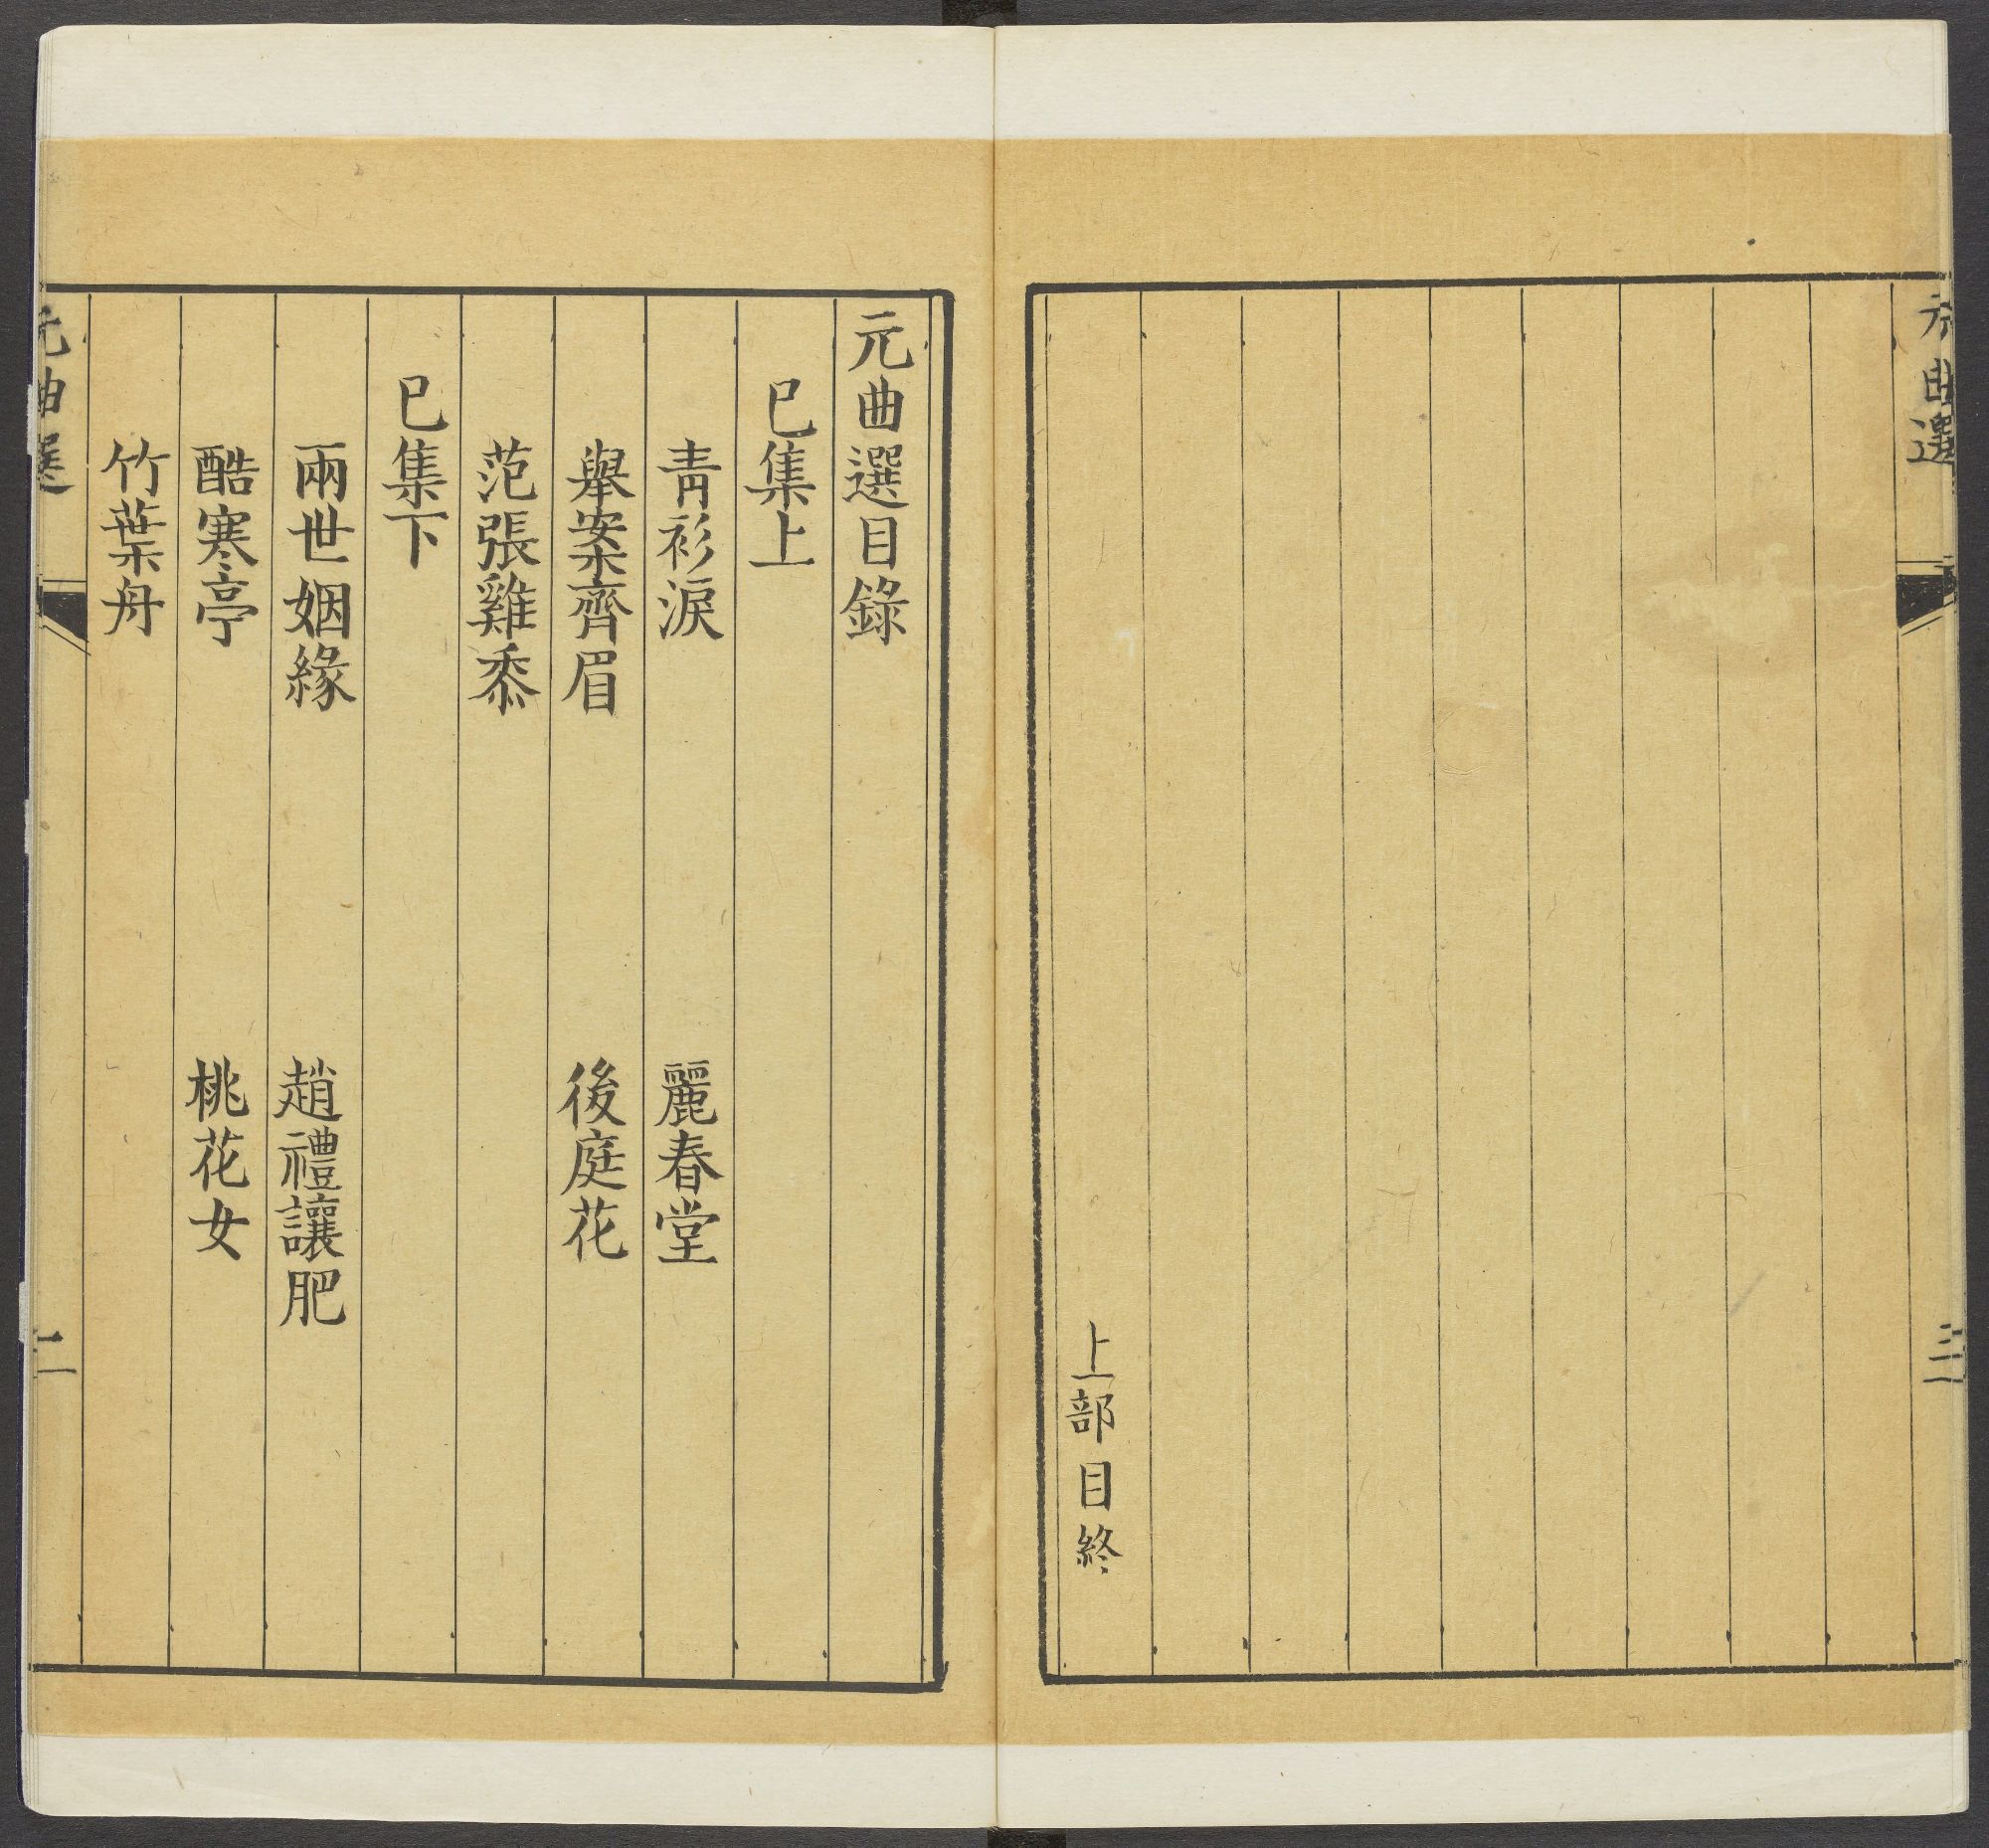 元曲選
三
上部目終
元曲選目錄
巳集上
青衫淚 麗春堂
舉案齊眉 後庭花
范張雞黍
巳集下
兩世姻緣 趙禮讓肥
酷寒亭 桃花女
竹葉舟
元曲選
二